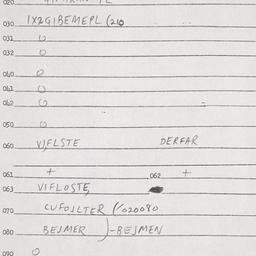 020
030 1X2GIBEMEPL (210
031 0
032 0
040 0
041 0
042 0
050 0
060 VIFLSTE DERFAR
061 + 062 +
063 VIFLOSTE
070 CUFOJLTER (/020080
080 BEJMER )-BEJMEN
090 0